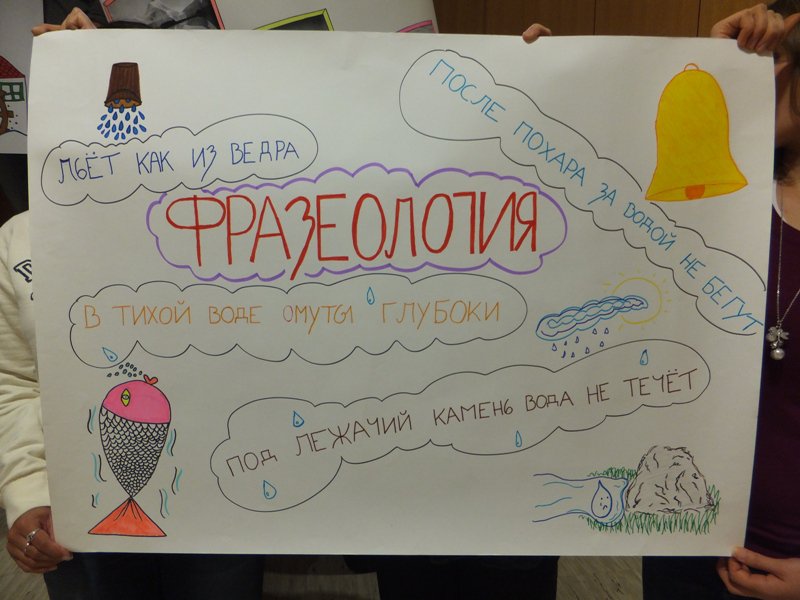 ЛЬЁТ КАК ИЗ ВЕДРА
ПОСЛЕ ПОХАРА ЗА ВОДОЙ НЕ БЕГУТ
ФРАЗЕОЛОГИЯ
В ТИХОЙ ВОДЕ ОМУТЫ ГЛУБОКИ
ПОД ЛЕЖАЧИЙ КАМЕНЬ ВОДА НЕ ТЕЧЁТ